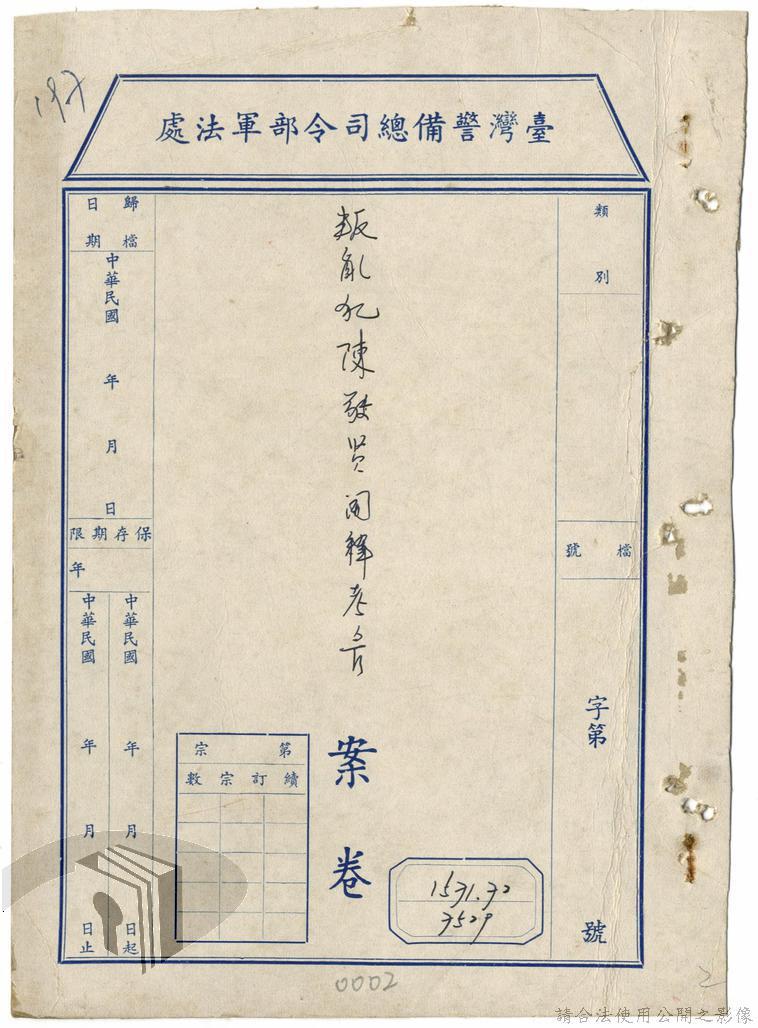 臺灣警備總司令部軍法處
類別
檔號
字第
號
叛亂犯陳敬賢開釋考管
案卷
第宗
續訂宗數
1571.32
7529
歸檔日期
中華民國 年 月 日
保存期限
年
中華民國 年 月 日起
中華民國 年 月 日止
197
0002
2
請合法使用公開之影像